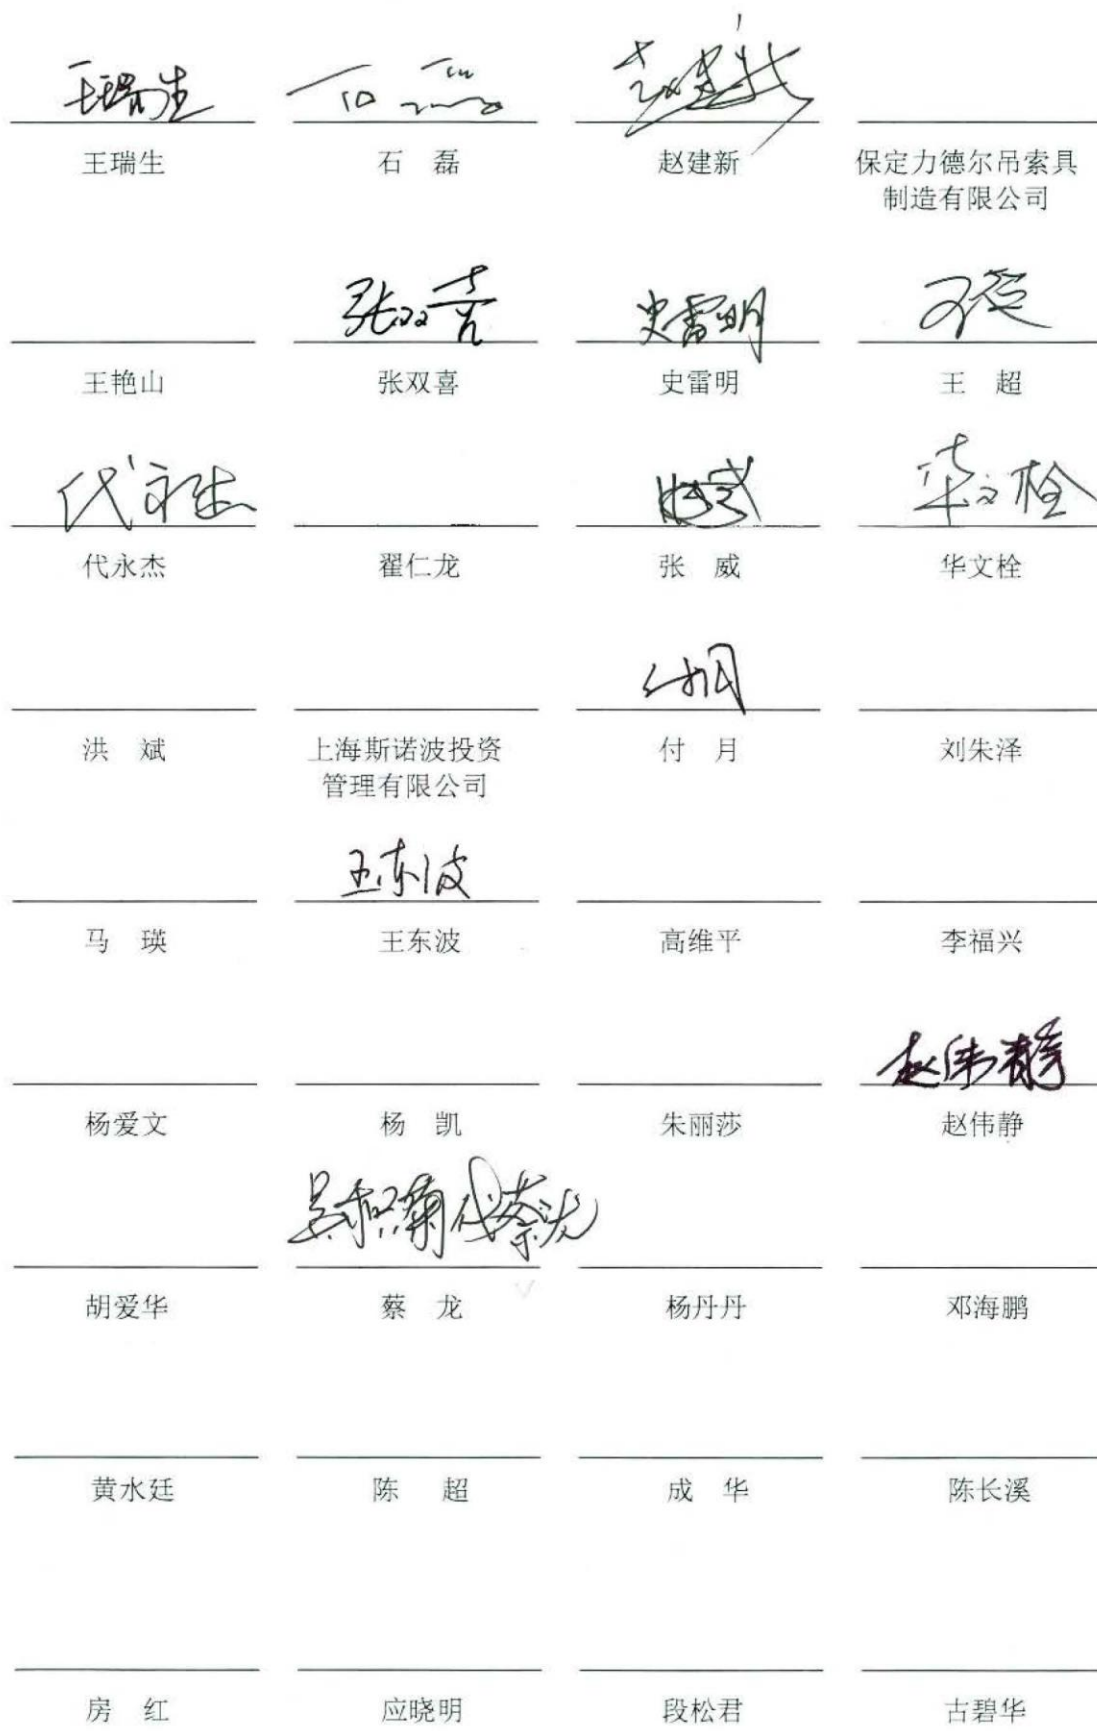 王瑞生 石磊 赵建新
王瑞生 石 磊 赵建新 保定力德尔吊索具
制造有限公司
张双喜 史雷明 王超
王艳山 张双喜 史雷明 王 超
代永杰 张威 华文栓
代永杰 翟仁龙 张 威 华文栓
付月
洪 斌 上海斯诺波投资 付 月 刘朱泽
管理有限公司
王东波
马 瑛 王东波 高维平 李福兴
赵伟静
杨爱文 杨 凯 朱丽莎 赵伟静
代蔡龙
胡爱华 蔡 龙 杨丹丹 邓海鹏
黄水廷 陈 超 成 华 陈长溪
房 红 应晓明 段松君 古碧华